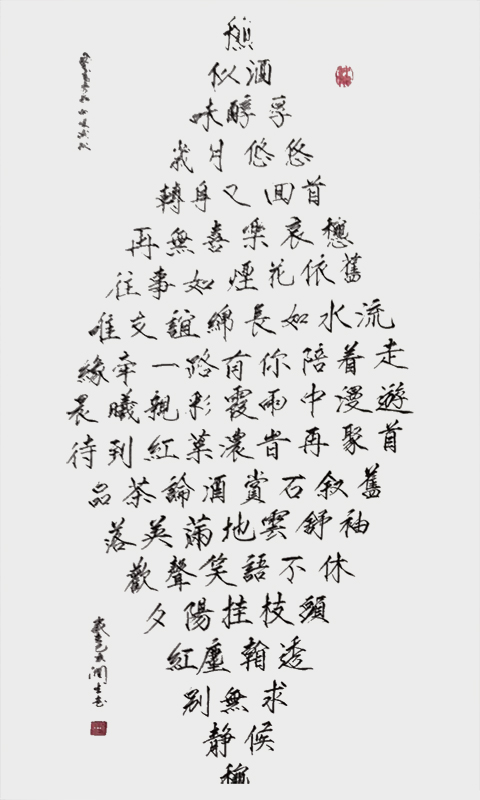 穐
似酒
味醇孚
歲月悠悠
轉身又回首
再無喜樂哀
往事如煙花依舊
唯友誼綿長如水流
緣牽一路有你陪着走
晨曦親彩霞雨中漫遊
待到紅葉濃昔再聚首
品茶論酒賞石叙舊
落英滿地雲舒袖
歡聲笑語不休
夕陽挂枝頭
紅塵翰透
别無求
靜候
穐